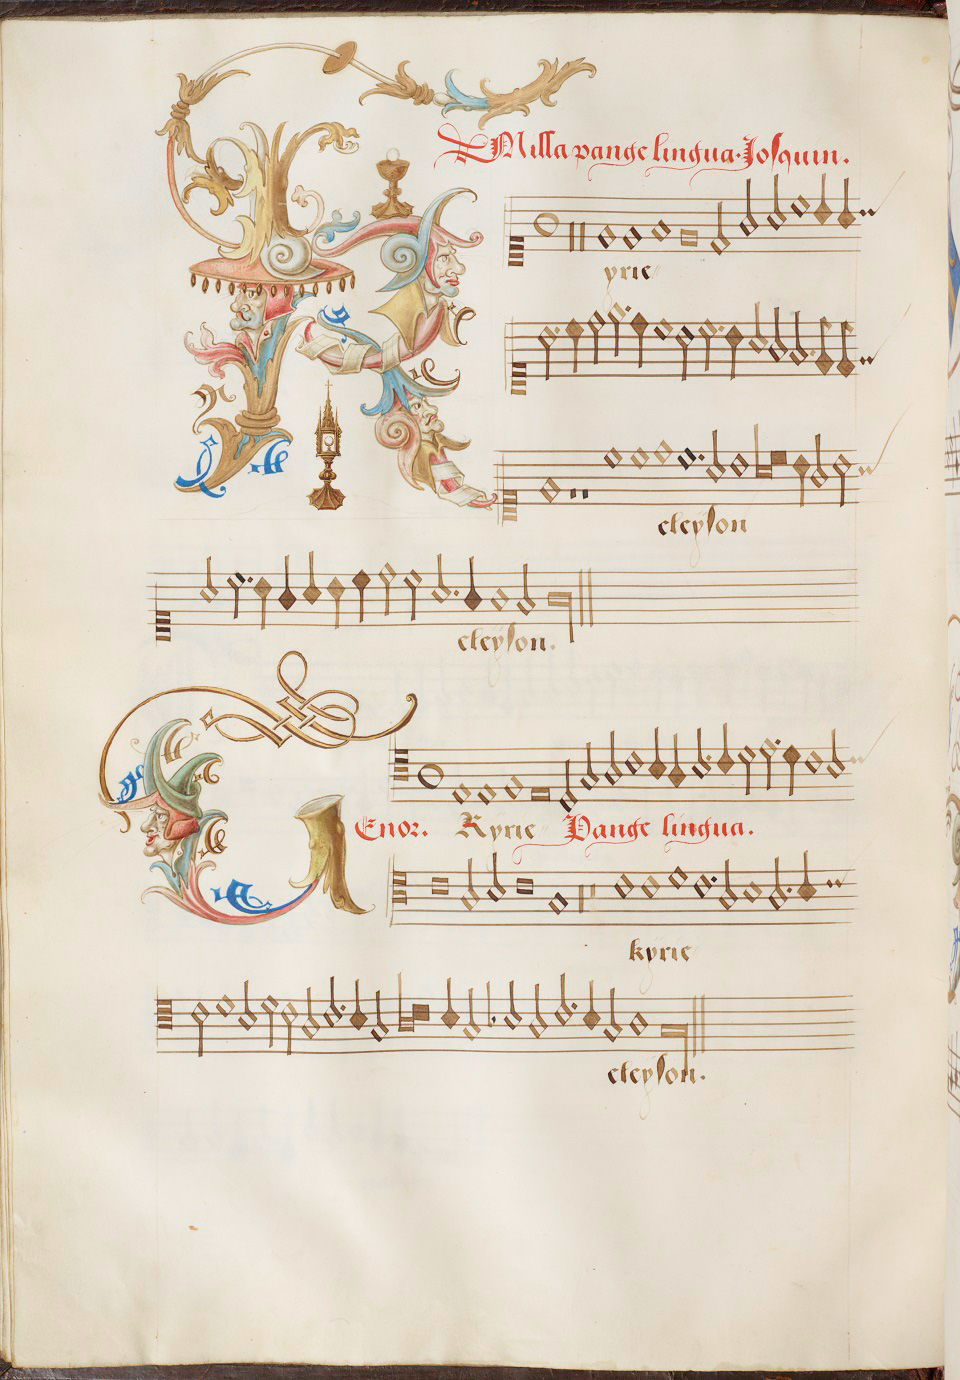 Missa pange lingua. Josquin.
Kyrie
eleyson
eleyson.
Tenor. Kyrie Pange lingua.
kyrie
eleyson.